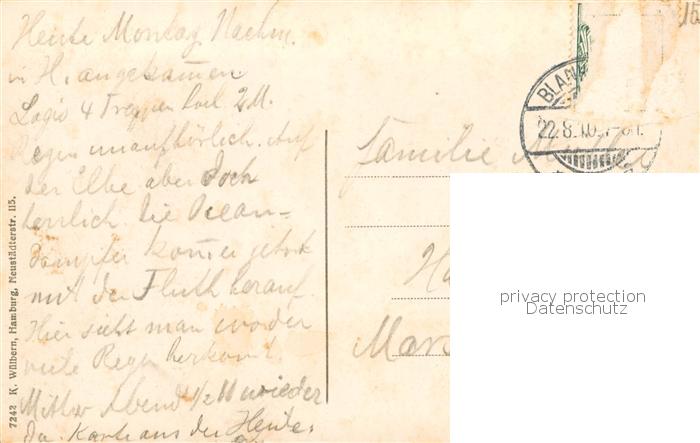 Heute Montag Nachm.
in H. angekommen.
Logis 4 Treppen hoch 2 M.
Regen unaufhörlich. Auf
der Elbe aber doch
herrlich. Die Ocean-
dampfer kommen
mit der Fluth herauf.
Hier sieht man wo der
viele Regen herkomt.
Mittw Abend 1/2 11 wieder
da. Karte aus der
Familie
Ha
Mar
BLAN
22.8.10.
7242 K. Wülbern, Hamburg, Neustädterstr. 115.
privacy protection
Datenschutz